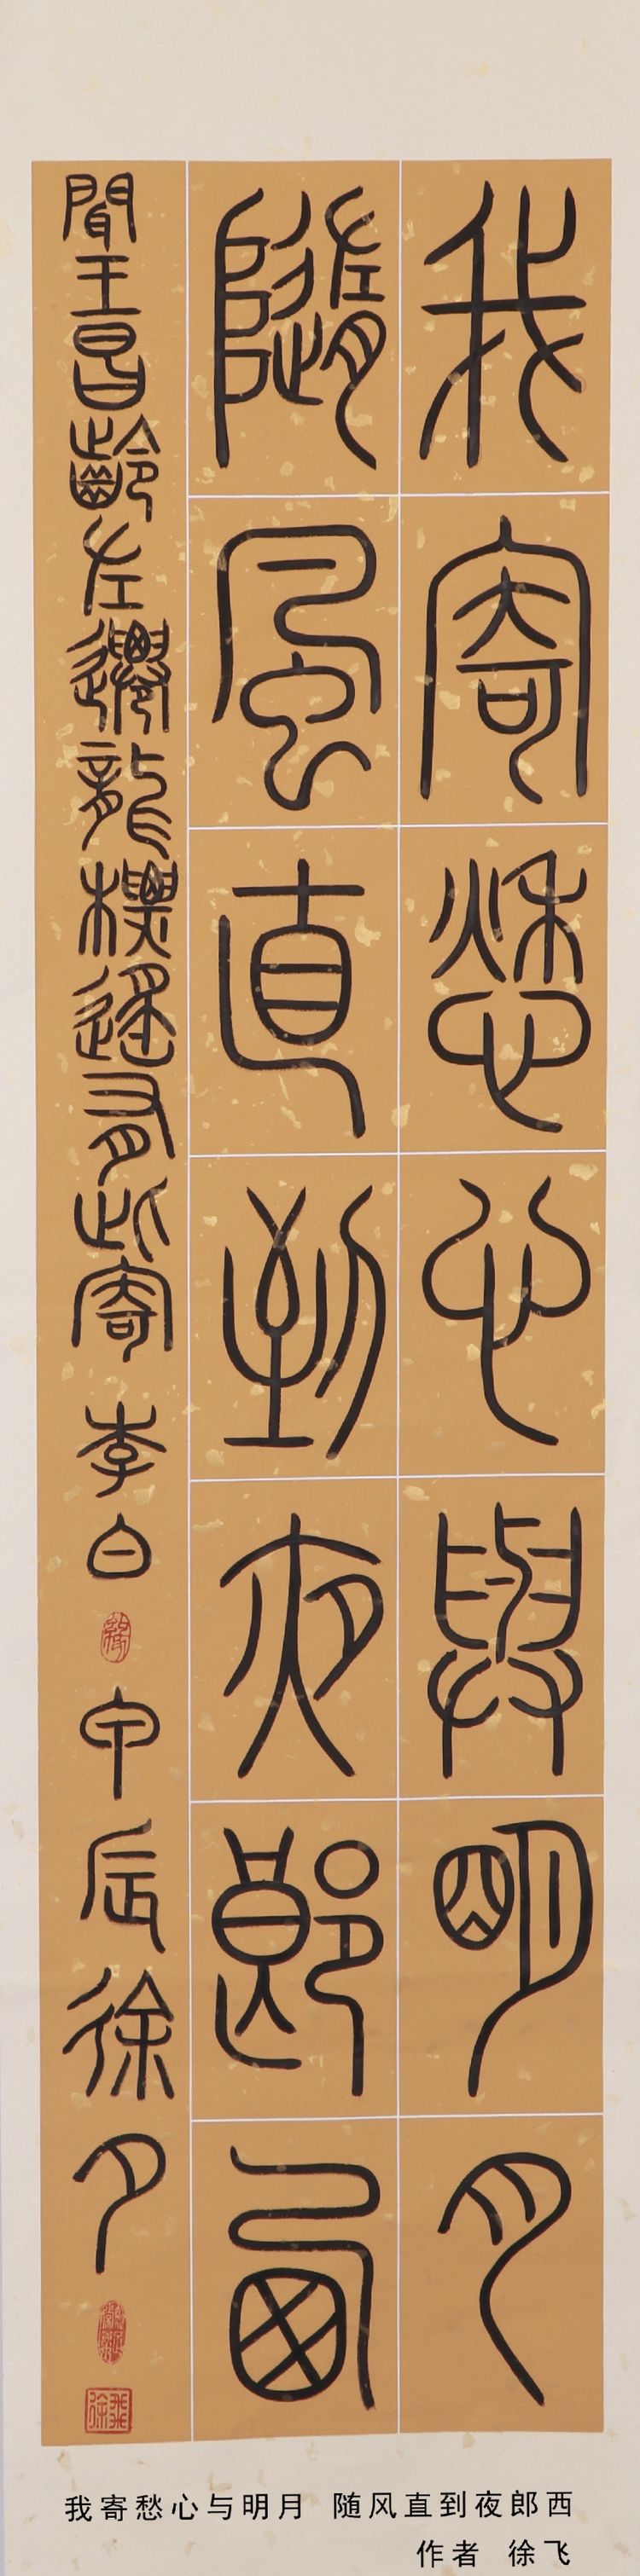 我寄愁心與明月
隨風直到夜郎西
聞王昌齡左遷龍標遙有此寄 李白 甲辰徐夕
徐飛
我寄愁心与明月 随风直到夜郎西
作者 徐飞